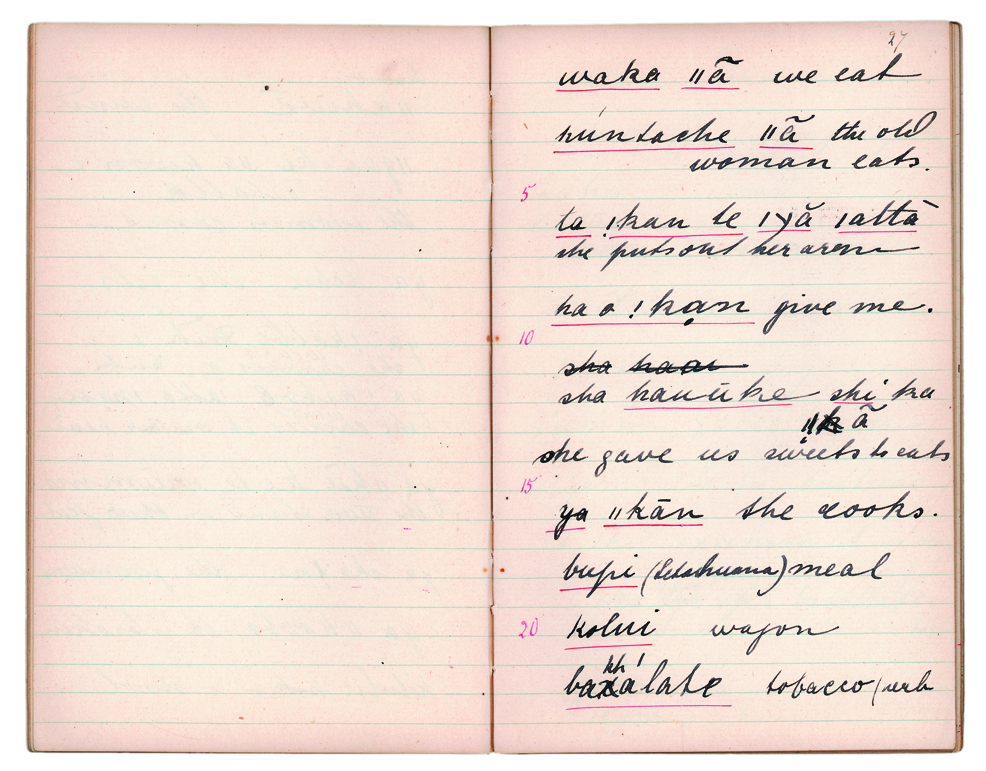 27
waka ǁã we eat
húntache ǁã the old
woman eats.
5
ta !kan te ǀyǎ ǀattà
she puts out her arm
ha o !kạn give me.
10
sha haar
sha hanūke shi ka
ǁk ã
she gave us sweets to eats
15
ya ǁkān she cooks.
bupi (Setshuana) meal
20 kolui wagon
kh
baxálate tobacco (verb